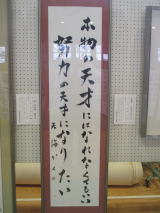 本物の天才にはなれなくてもいい
努力の天才になりたい